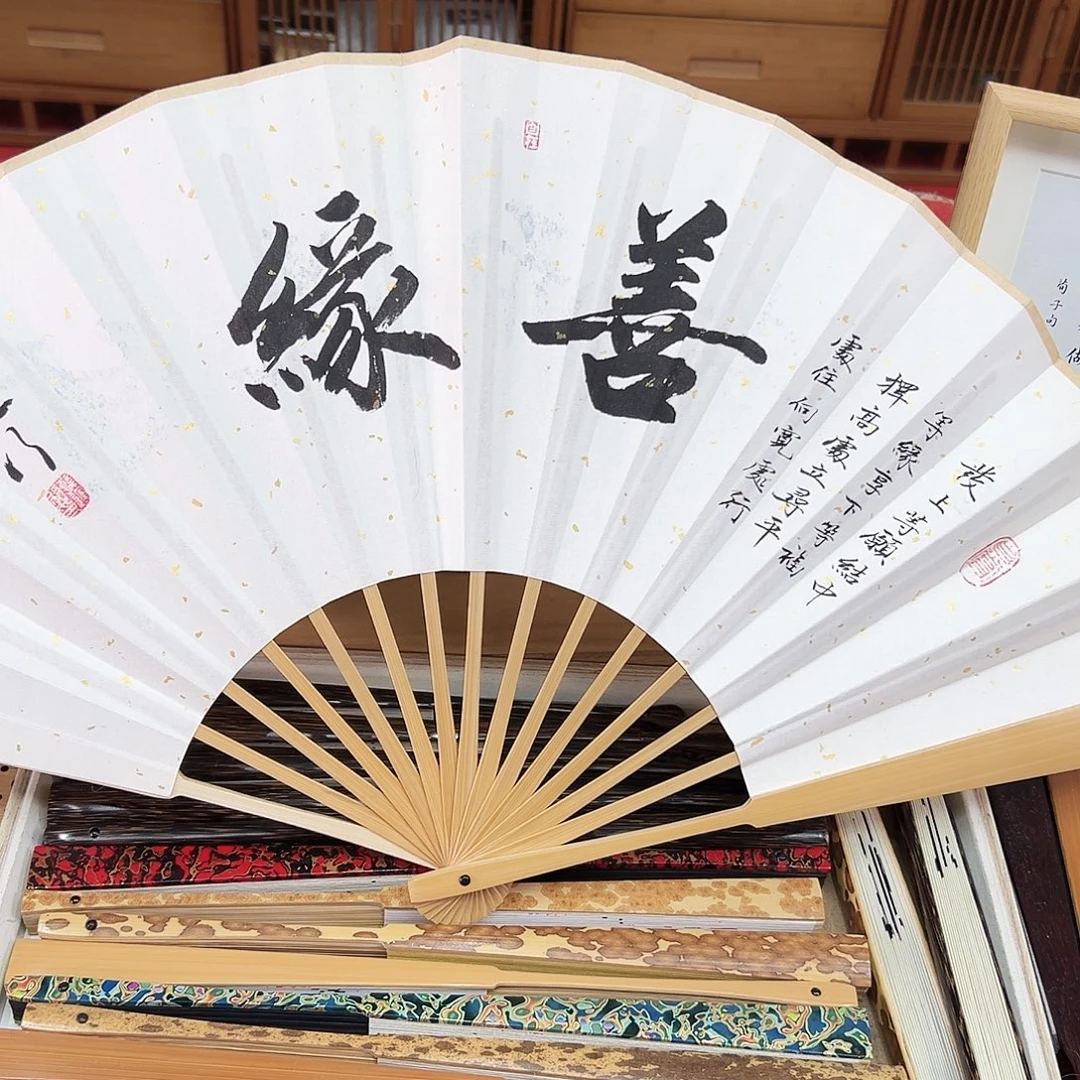 發上等願結中
等緣享下等福
擇高處立尋平
處住向寬處行
善緣
自在
荀子句